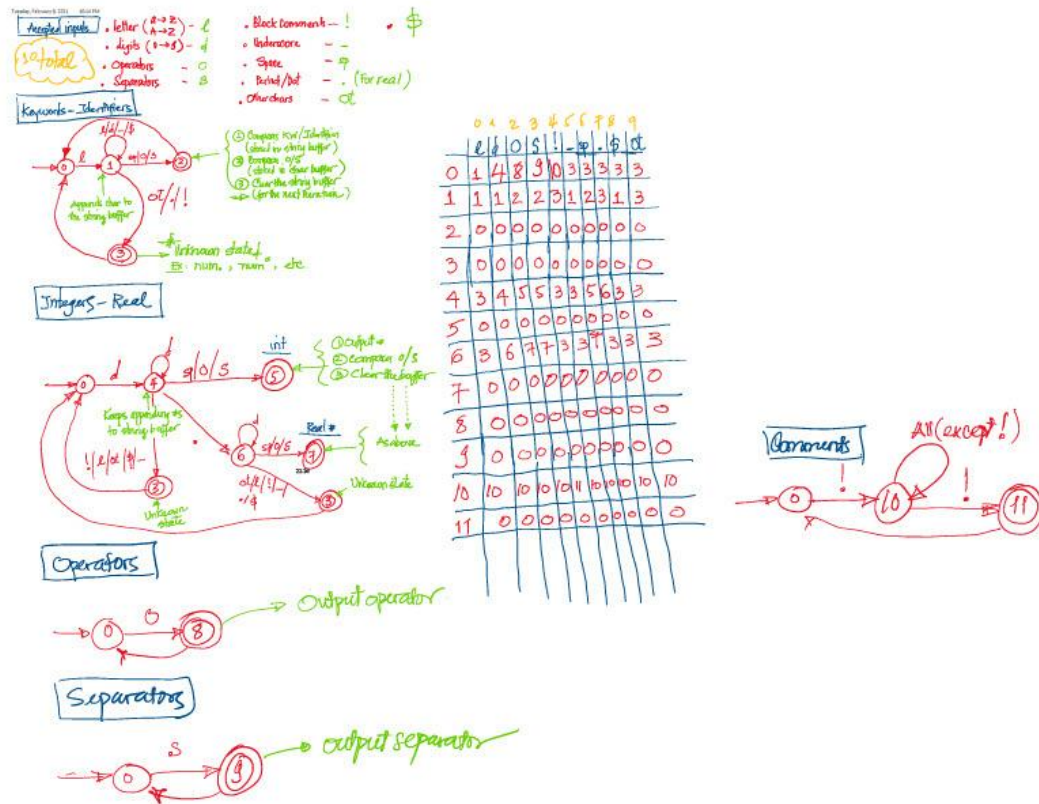 Tuesday, February 9, 2021
Accepted inputs
10 total
• letter (a→z
A→Z) - l
• digits (0→9) - d
• Operators - O
• Separators - S
• Block Comments - !
• Underscore - _
• Space - sp
• Period/Dot - . (For real)
• Other chars - ot
• $
Keywords - Identifiers
l/d/_/$
0
l
1
sp/O/S
2
Append char to
the string buffer
ot/./!
3
① Compare KW/Identifier
(stored in string buffer)
② Compare O/S
(stored in char buffer)
③ Clear the string buffer
(for the next iteration)
Unknown state
Ex: num., num", etc
Integers - Real
0
d
d
4
sp/O/S
int
5
① Output #
② Compare O/S
③ Clear the buffer
Keeps appending #s
to string buffer
.
d
6
sp/O/S
Real #
7
As above
!/l/ot/$/_
3
Unknown
state
3
Unknown state
Operators
0
O
8
Output operator
Separators
0
S
9
output separator
0 1 2 3 4 5 6 7 8 9
l d O S ! _ sp . $ ot
0 1 4 8 9 10 3 3 3 3 3
1 1 1 2 2 3 1 2 3 1 3
2 0 0 0 0 0 0 0 0 0 0
3 0 0 0 0 0 0 0 0 0 0
4 3 4 5 5 3 3 5 6 3 3
5 0 0 0 0 0 0 0 0 0 0
6 3 6 7 7 3 3 7 3 3 3
7 0 0 0 0 0 0 0 0 0 0
8 0 0 0 0 0 0 0 0 0 0
9 0 0 0 0 0 0 0 0 0 0
10 10 10 10 10 11 10 10 10 10 10
11 0 0 0 0 0 0 0 0 0 0
Comments
All (except !)
0
!
10
!
11